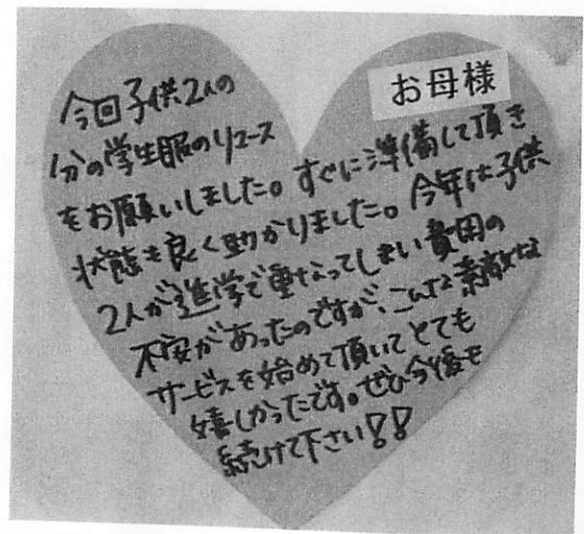 お母様
今回子供2人の
分の学生服のリユース
をお願いしました。すぐに準備して頂き
状態も良く助かりました。今年は子供
2人が進学で重なってしまい費用の
不安があったのですが、こんな素敵な
サービスを始めて頂いてとても
嬉しかったです。ぜひ今後も
続けて下さい!!